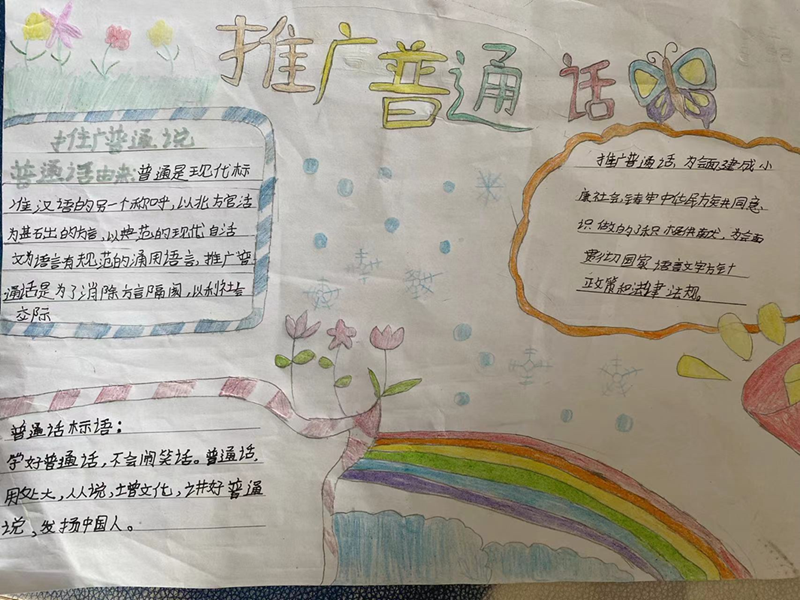 推广普通话
推广普通说
普通话由来普通是现代标
准汉语的另一个称呼，以北方官话
为基石出的方言，以典范的现代白话
文为语言有规范的通用语言，推广普
通话是为了消除方言隔阂，以利社会
交际
推广普通话，为全面建成小
康社会，铸牢中华民方矣共同意
识做的
贯彻国家语言文字方针
政策和法律法规。
普通话标语：
学好普通话，不会闹笑话。普通话，
用处大，人人说，增文化，讲好普通
说，发扬中国人。